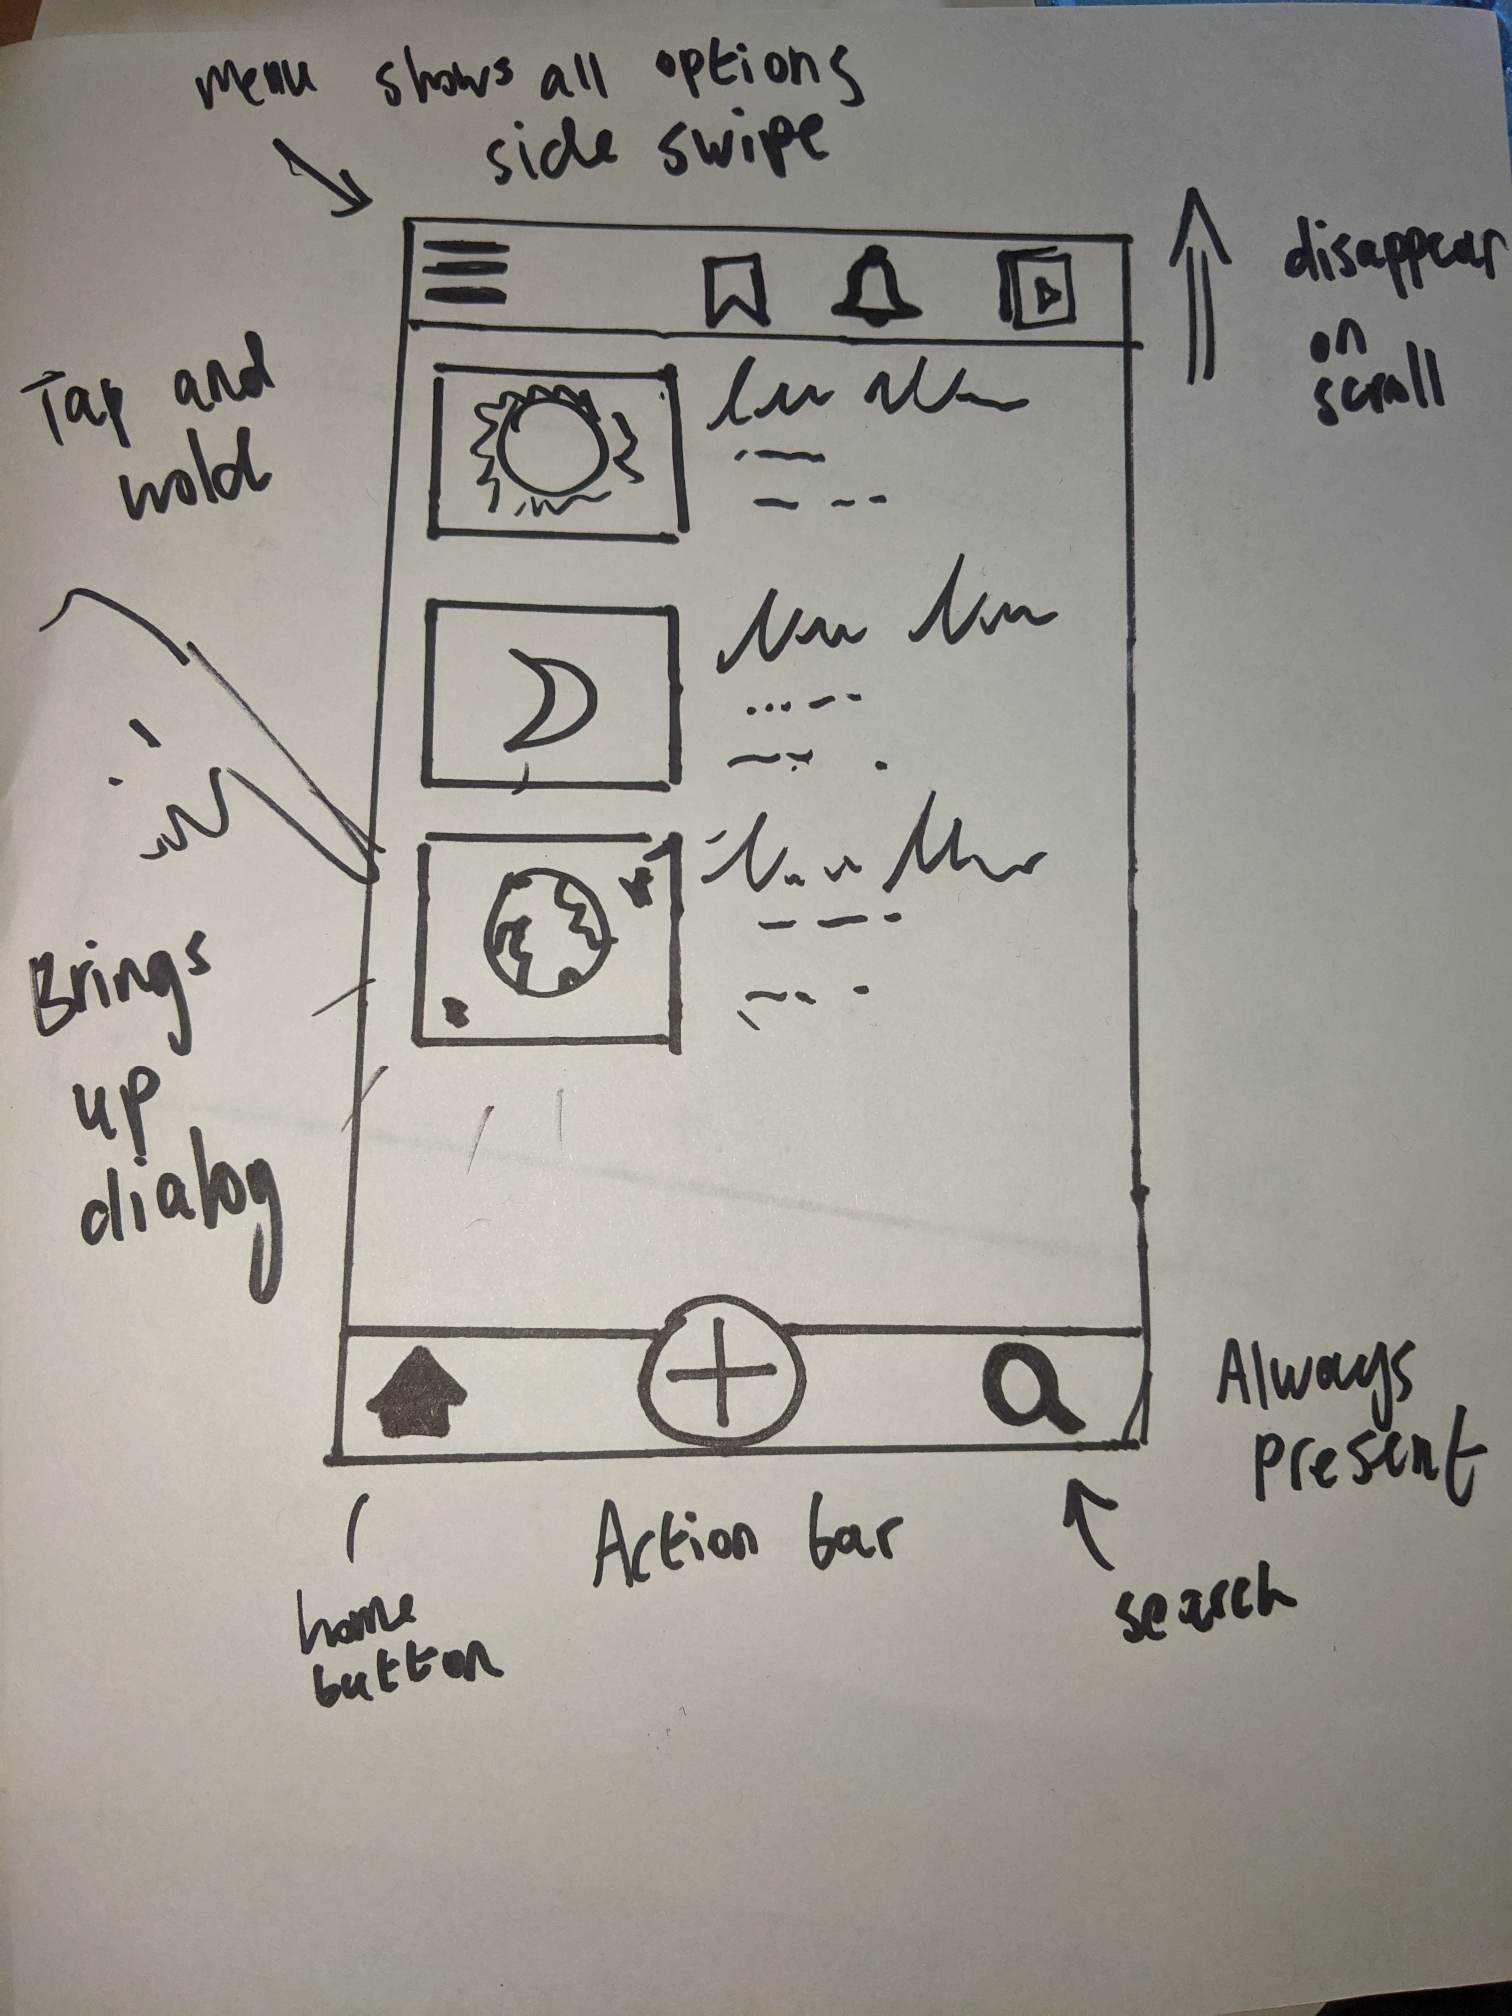 Menu shows all options
side swipe
disappear
on
scroll
Tap and
hold
Brings
up
dialog
Always
present
Action bar
home
button
search